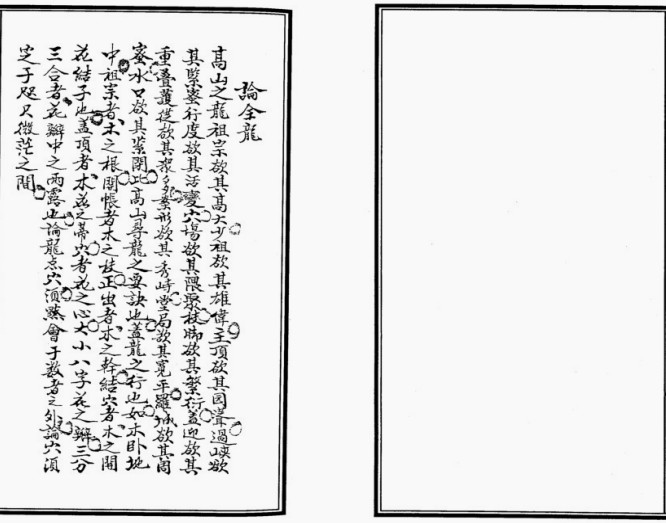 論全龍
高山之龍祖宗欲其高大少祖欲其雄偉主頂欲其圓聳過峽欲
其緊密行度欲其活變穴場欲其隈聚枝脚欲其繁衍蓋迎欲其
重疊護從欲其衆多案形欲其秀峙堂局欲其寬平羅城欲其周
密水口欲其紫閉此高山尋龍之要訣也蓋龍之行也如木卧地
中祖宗者木之根開帳者木之枝正出者木之幹結穴者木之開
花結子也蓋頂者木花之蒂穴者花之心大小八字花之瓣三分
三合者花瓣中之雨露也論龍点穴須黙會于数者之外論穴須
定于咫尺微茫之間